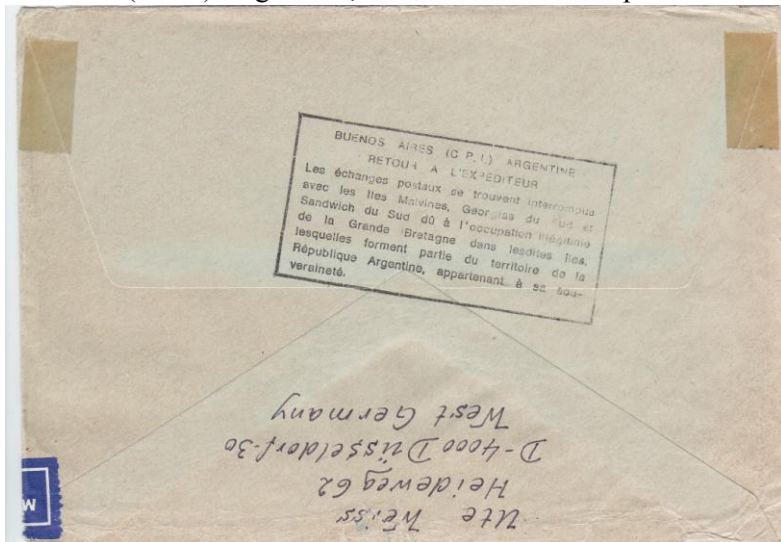 BUENOS AIRES (C P.I.) ARGENTINE
RETOUR A L'EXPEDITEUR
Les échanges postaux se trouvent interrompus
avec les Iles Malvines, Georgias du Sud et
Sandwich du Sud dû à l'occupation illégitime
de la Grande Bretagne dans lesdites îles,
lesquelles forment partie du territoire de la
République Argentine, appartenant à sa sou-
veraineté.
Ute Weiss
Heideweg 62
D-4000 Düsseldorf-30
West Germany